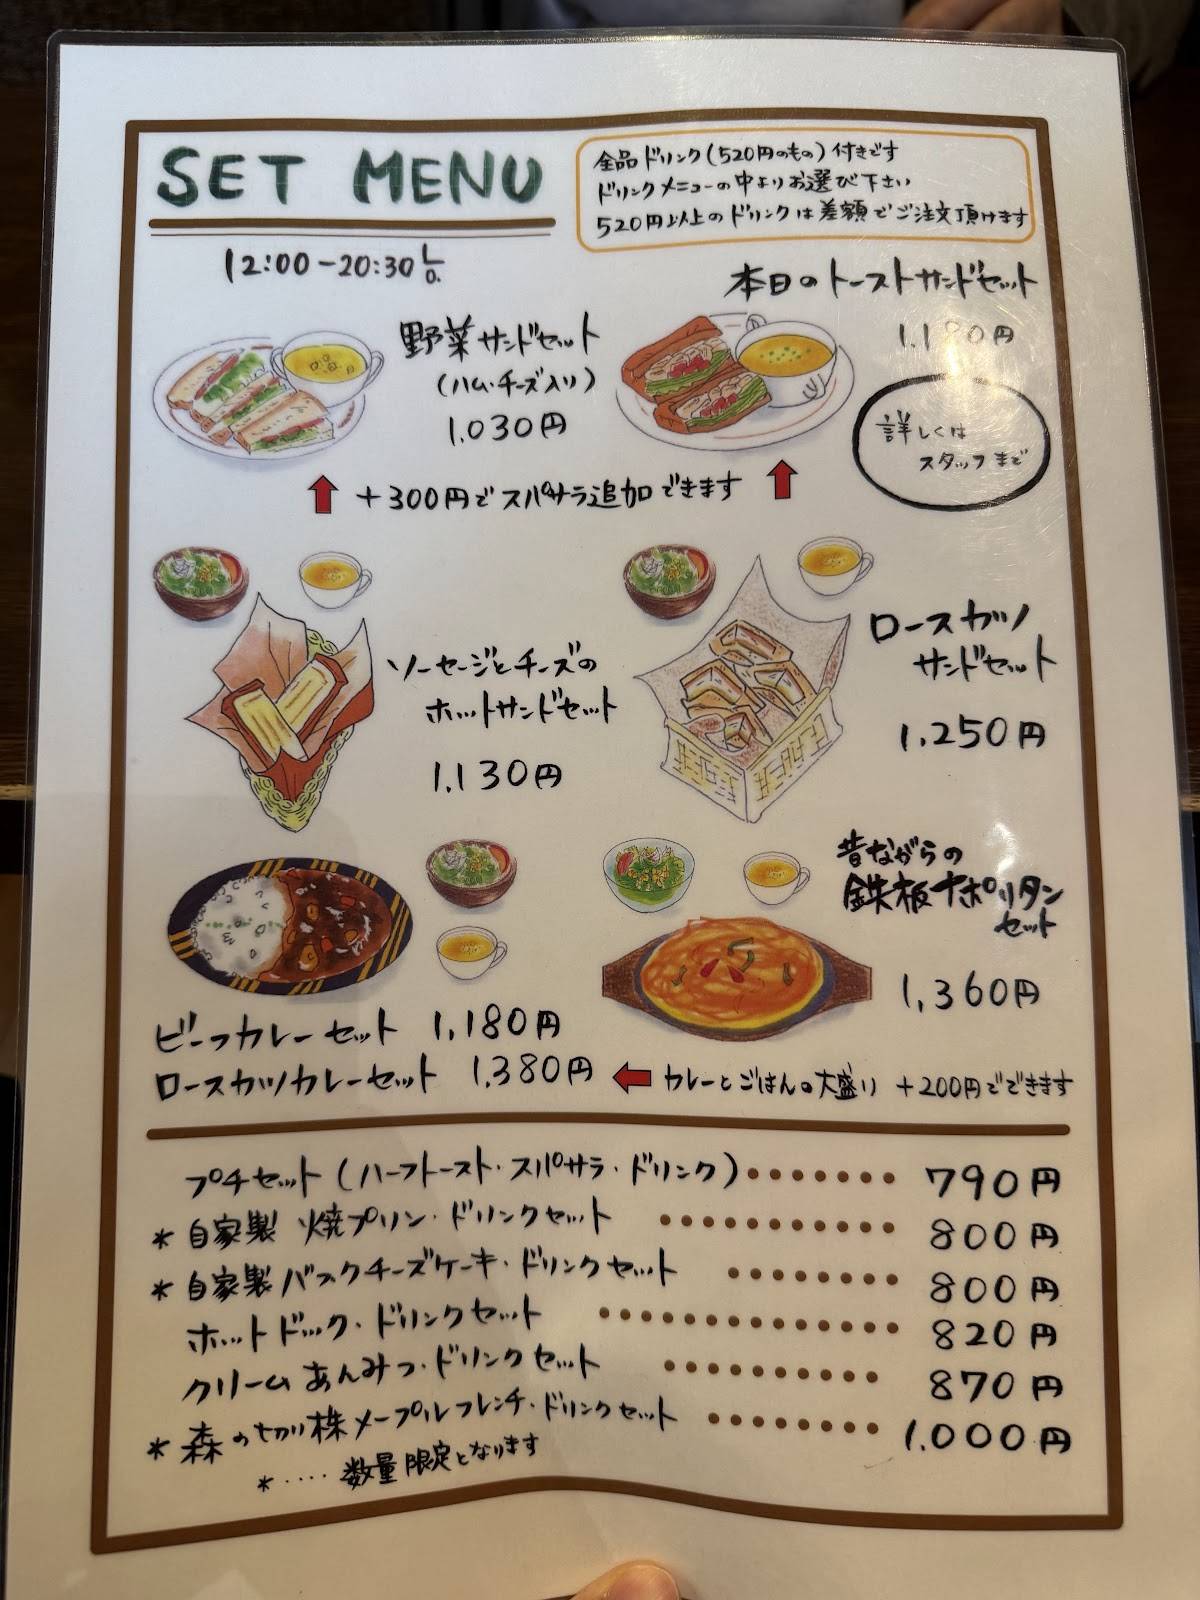 SET MENU
全品ドリンク(520円のもの)付きです
ドリンクメニューの中よりお選び下さい
520円以上のドリンクは差額でご注文頂けます
12:00-20:30 L.O.
本日のトーストサンドセット
1,180円
野菜サンドセット
(ハム・チーズ入り)
1,030円
詳しくは
スタッフまで
+300円でスパサラ追加できます
ソーセージとチーズの
ホットサンドセット
1,130円
ロースカツ
サンドセット
1,250円
昔ながらの
鉄板ナポリタン
セット
1,360円
ビーフカレーセット 1,180円
ロースカツカレーセット 1,380円
カレーとごはんの大盛り +200円でできます
プチセット(ハーフトースト・スパサラ・ドリンク)・・・・・・・ 790円
*自家製 焼プリン・ドリンクセット ・・・・・・・・・・・ 800円
*自家製バスクチーズケーキ・ドリンクセット ・・・・・・・・ 800円
ホットドック・ドリンクセット ・・・・・・・・・・・・・・ 820円
クリームあんみつ・ドリンクセット ・・・・・・・・・・ 870円
*森の切り株メープルフレンチ・ドリンクセット ・・・・・・・・ 1,000円
*・・・・ 数量限定となります